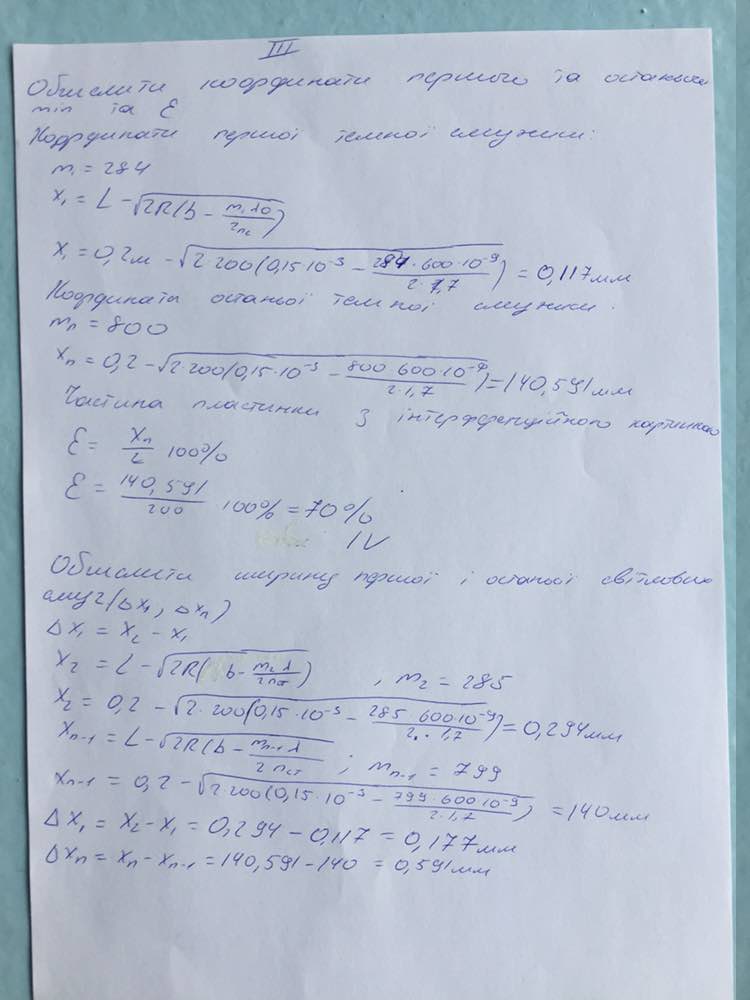 III
Обчислити координати першого та останього
min та ε
Координати першої темної смужки:
m₁ = 284
x₁ = L - √(2R(b - m₁λ0/2nс))
x₁ = 0,2м - √(2·200(0,15·10⁻³ - 284·600·10⁻⁹/2·1,7)) = 0,117мм
Координати останьої темної смужки.
mn = 800
xn = 0,2 - √(2·200(0,15·10⁻³ - 800·600·10⁻⁹/2·1,7)) = 140,591мм
Частина пластинки з інтерференційного картинкою
ε = xn/L 100%
ε = 140,591/200 100% = 70%
IV
Обчислити ширину першої і останьої світлових
смуг (Δx₁, Δxn)
Δx₁ = x₂ - x₁
x₂ = L - √(2R(b - m₂λ/2nст)) , m₂ = 285
x₂ = 0,2 - √(2·200(0,15·10⁻³ - 285·600·10⁻⁹/2·1,7)) = 0,294мм
xn-1 = L - √(2R(b - mn-1λ/2nст)) ; mn-1 = 799
xn-1 = 0,2 - √(2·200(0,15·10⁻³ - 799·600·10⁻⁹/2·1,7)) = 140мм
Δx₁ = x₂ - x₁ = 0,294 - 0,117 = 0,177мм
Δxn = xn - xn-1 = 140,591 - 140 = 0,591мм